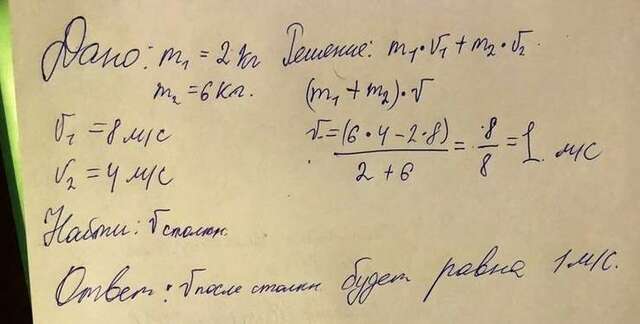 Дано: m₁ = 2 кг Решение: m₁·v₁ + m₂·v₂.
m₂ = 6 кг. (m₁ + m₂)·v
v₁ = 8 м/с v = (6·4 − 2·8) / 2 + 6 = 8/8 = 1 м/с
v₂ = 4 м/с
Найти: v столкн.
Ответ: v после столкн будет равна 1 м/с.